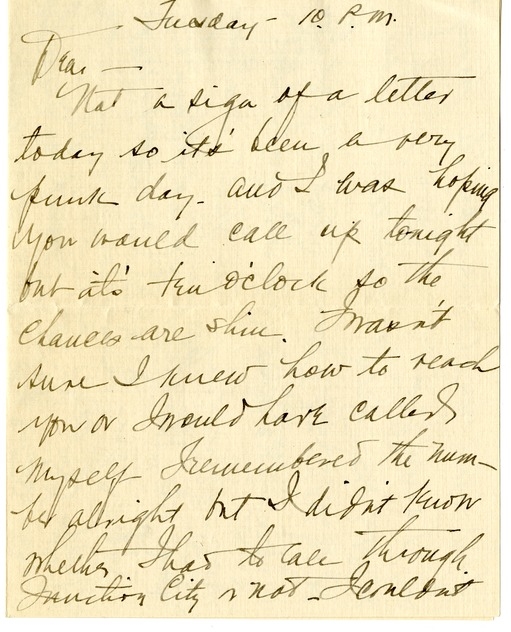 Tuesday - 10. P.M.
Dear -
Not a sign of a letter
today so it's been a very
punk day. And I was hoping
you would call up tonight
but it's ten o'clock so the
chances are slim. I wasn't
sure I knew how to reach
you or I would have called
myself I remembered the num-
ber alright but I didn't know
whether I had to call through
Junction City or not - I couldn't